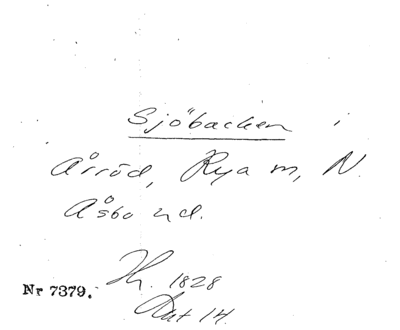 Sjöbacken i
Årröd, Rya m, N.
Åsbo hd.
Hr. 1828
Nr 7379.
Akt 14.